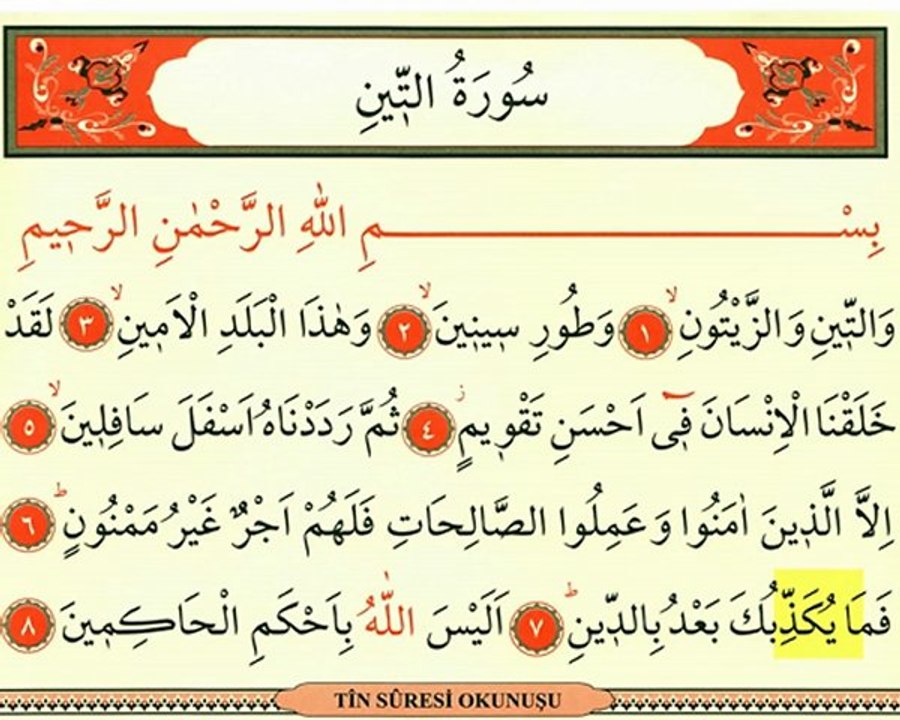 سُورَةُ التّ۪ينِ
بِسْمِ اللهِ الرَّحْمٰنِ الرَّح۪يمِ
وَالتّ۪ينِ وَالزَّيْتُونِۙ ﴿١﴾ وَطُورِ س۪ين۪ينَۙ ﴿٢﴾ وَهٰذَا الْبَلَدِ الْاَم۪ينِۙ ﴿٣﴾ لَقَدْ
خَلَقْنَا الْاِنْسَانَ ف۪ٓي اَحْسَنِ تَقْو۪يمٍۘ ﴿٤﴾ ثُمَّ رَدَدْنَاهُ اَسْفَلَ سَافِل۪ينَۙ ﴿٥﴾
اِلاَّ الَّذ۪ينَ اٰمَنُوا وَعَمِلُوا الصَّالِحَاتِ فَلَهُمْ اَجْرٌ غَيْرُ مَمْنُونٍۜ ﴿٦﴾
فَمَا يُكَذِّبُكَ بَعْدُ بِالدّ۪ينِۜ ﴿٧﴾ اَلَيْسَ اللّٰهُ بِاَحْكَمِ الْحَاكِم۪ينَ ﴿٨﴾
TÎN SÛRESİ OKUNUŞU